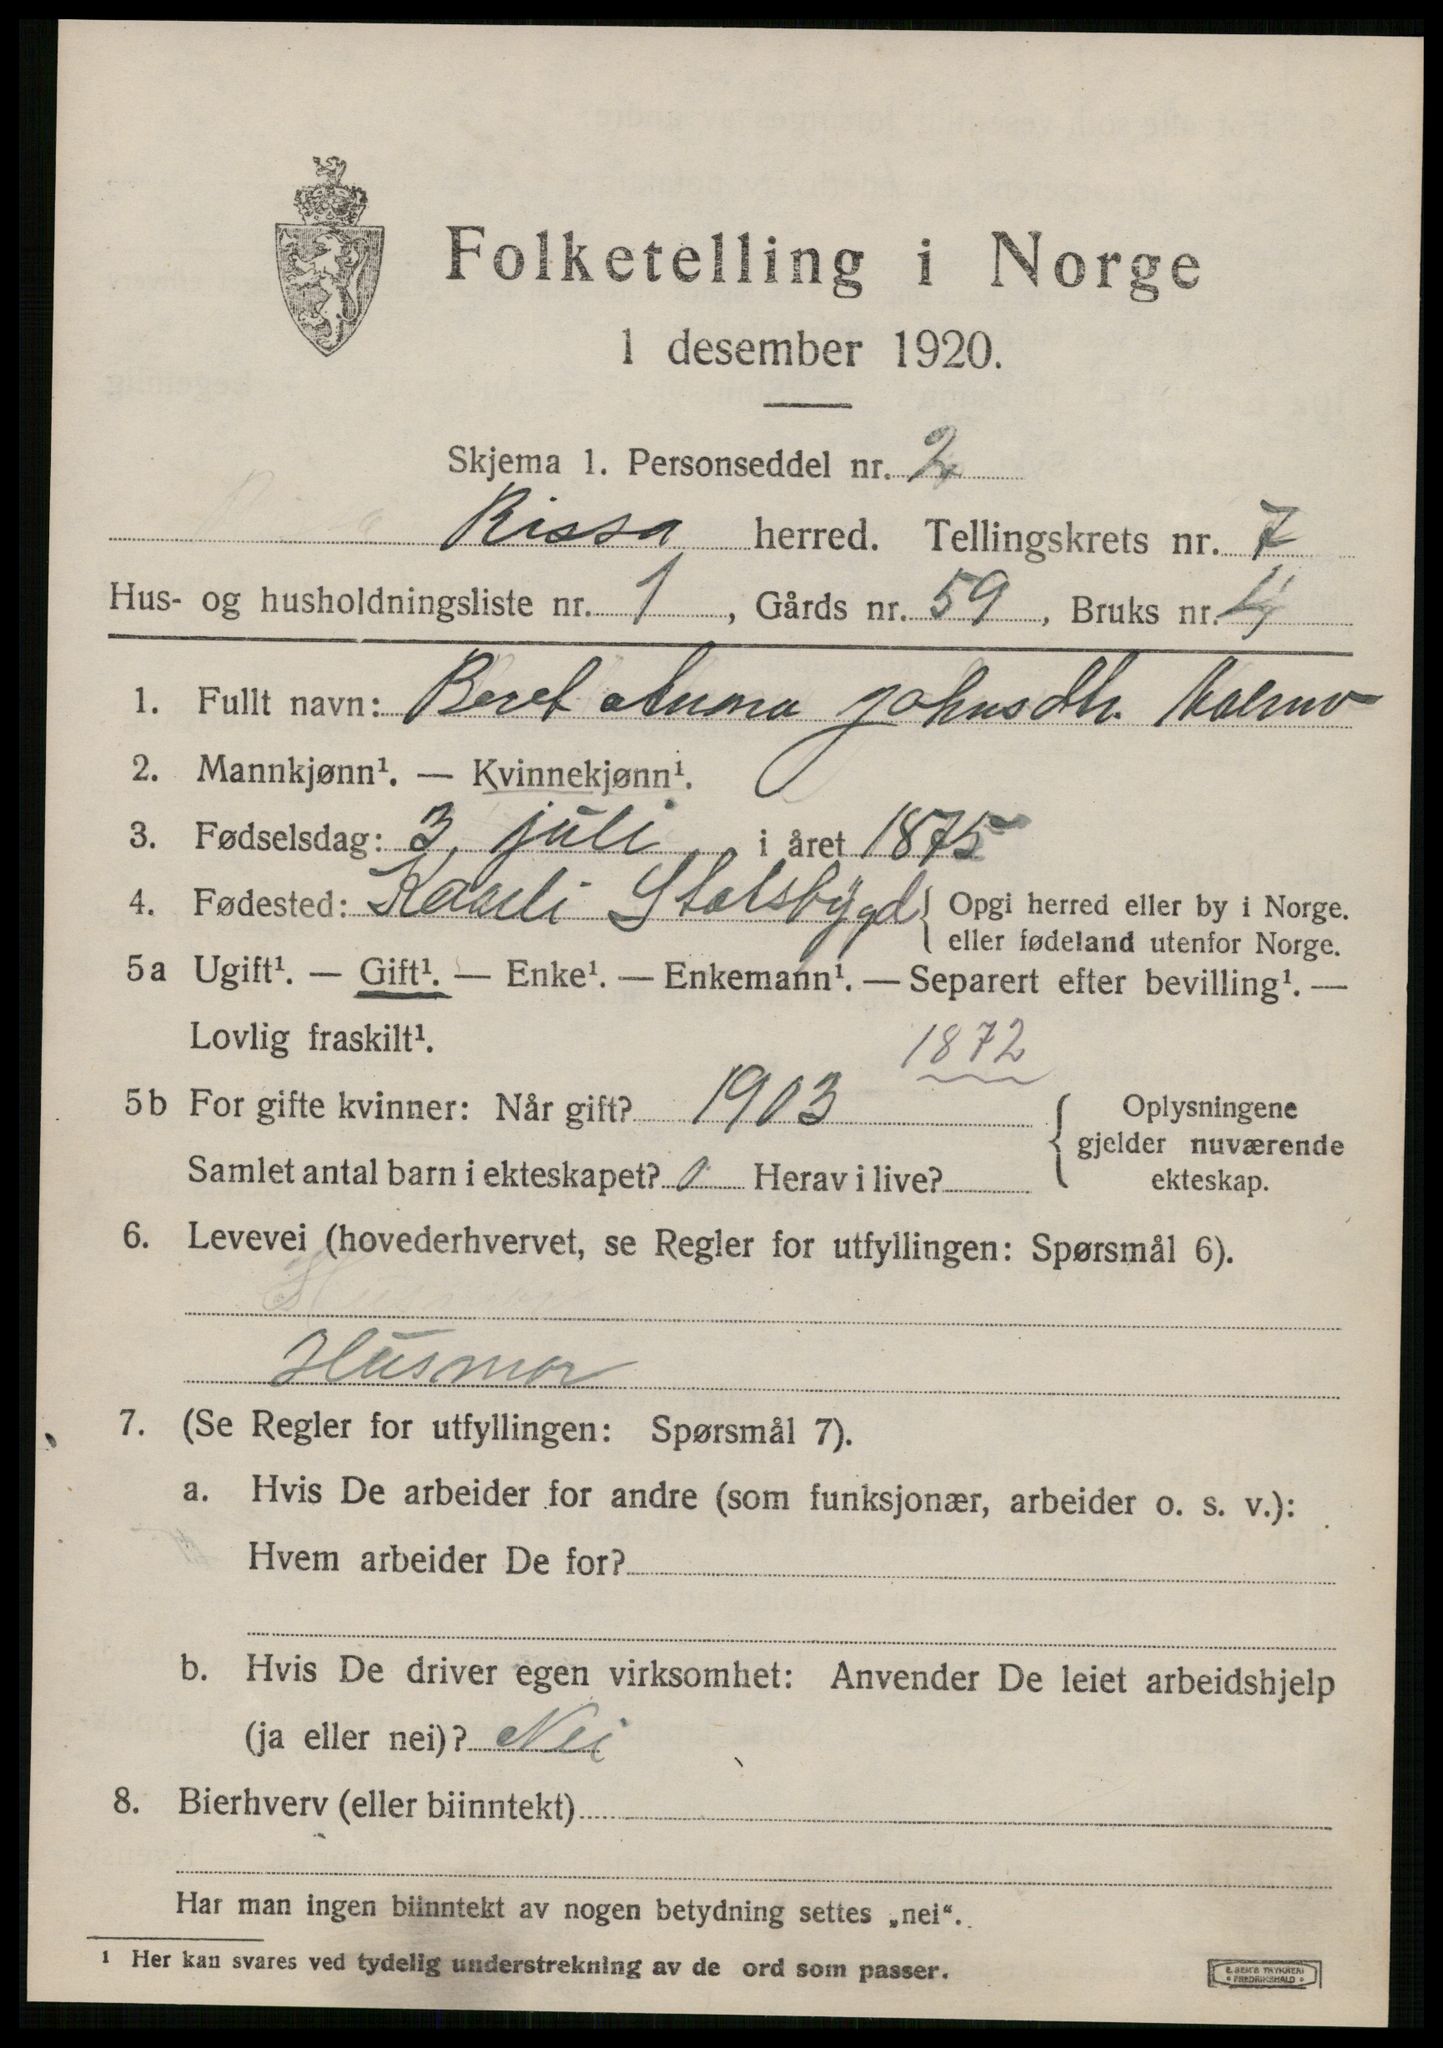 Folketelling i Norge
1 desember 1920.
Skjema 1. Personseddel nr. 2
Rissa herred. Tellingskrets nr. 7
Hus- og husholdningsliste nr. 1, Gårds nr. 59, Bruks nr. 4
1. Fullt navn: Beret Anna Johnsdtr.
2. Mannkjønn¹. — Kvinnekjønn¹.
3. Fødselsdag: 3. juli i året 1875
4. Fødested: Statsbygd { Opgi herred eller by i Norge.
eller fødeland utenfor Norge.
5a Ugift¹. — Gift¹. — Enke¹. — Enkemann¹. — Separert efter bevilling¹. —
Lovlig fraskilt¹.
1872
5b For gifte kvinner: Når gift? 1903
Samlet antal barn i ekteskapet? 0 Herav i live?
{ Oplysningene
gjelder nuværende
ekteskap.
6. Levevei (hovederhvervet, se Regler for utfyllingen: Spørsmål 6).
Husmor
7. (Se Regler for utfyllingen: Spørsmål 7).
a. Hvis De arbeider for andre (som funksjonær, arbeider o. s. v.):
Hvem arbeider De for?
b. Hvis De driver egen virksomhet: Anvender De leiet arbeidshjelp
(ja eller nei)? Nei
8. Bierhverv (eller biinntekt)
Har man ingen biinntekt av nogen betydning settes „nei“.
¹ Her kan svares ved tydelig understrekning av de ord som passer.
E. SEM'S TRYKKERI
FREDRIKSHALD